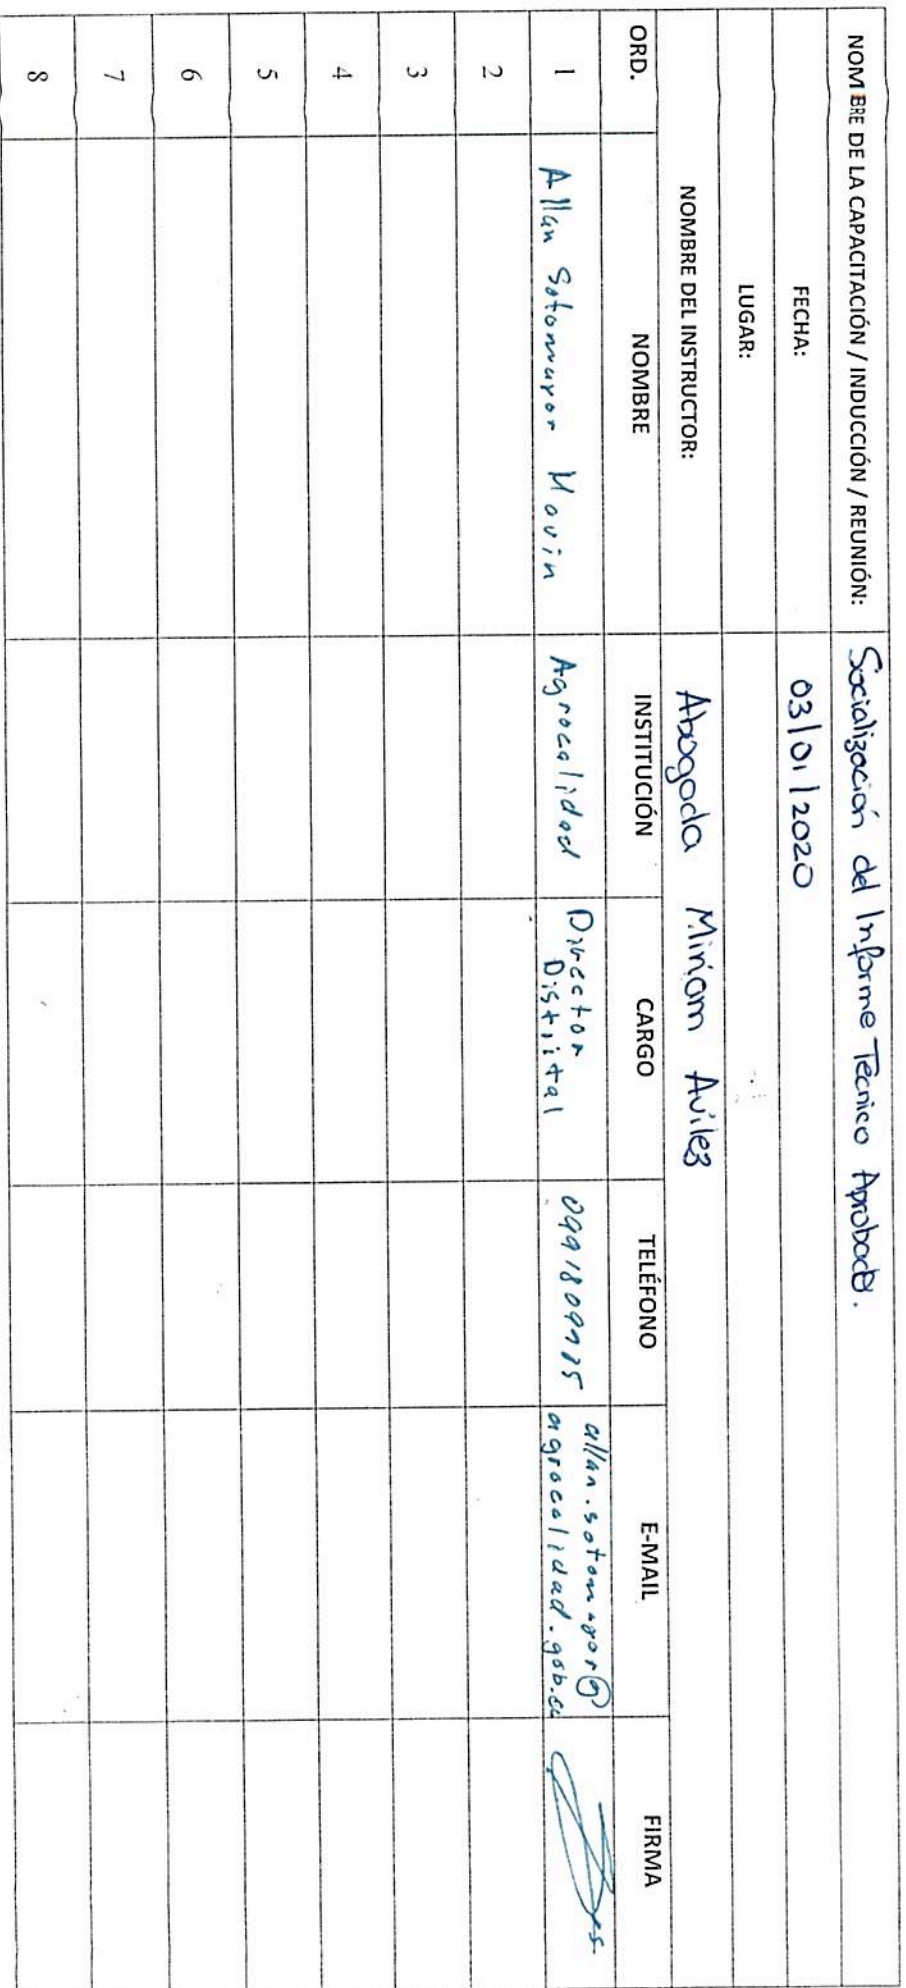 NOMBRE DE LA CAPACITACIÓN / INDUCCIÓN / REUNIÓN: Socialización del Informe Tecnico Aprobado.
FECHA: 03/01/2020
LUGAR:
NOMBRE DEL INSTRUCTOR: Abogada Miriam Avilez
ORD. NOMBRE INSTITUCIÓN CARGO TELÉFONO E-MAIL FIRMA
1 Allan Sotomayor Agrocalidad Director Distrital allan.sotomayor@agrocalidad.gob.ec
2
3
4
5
6
7
8